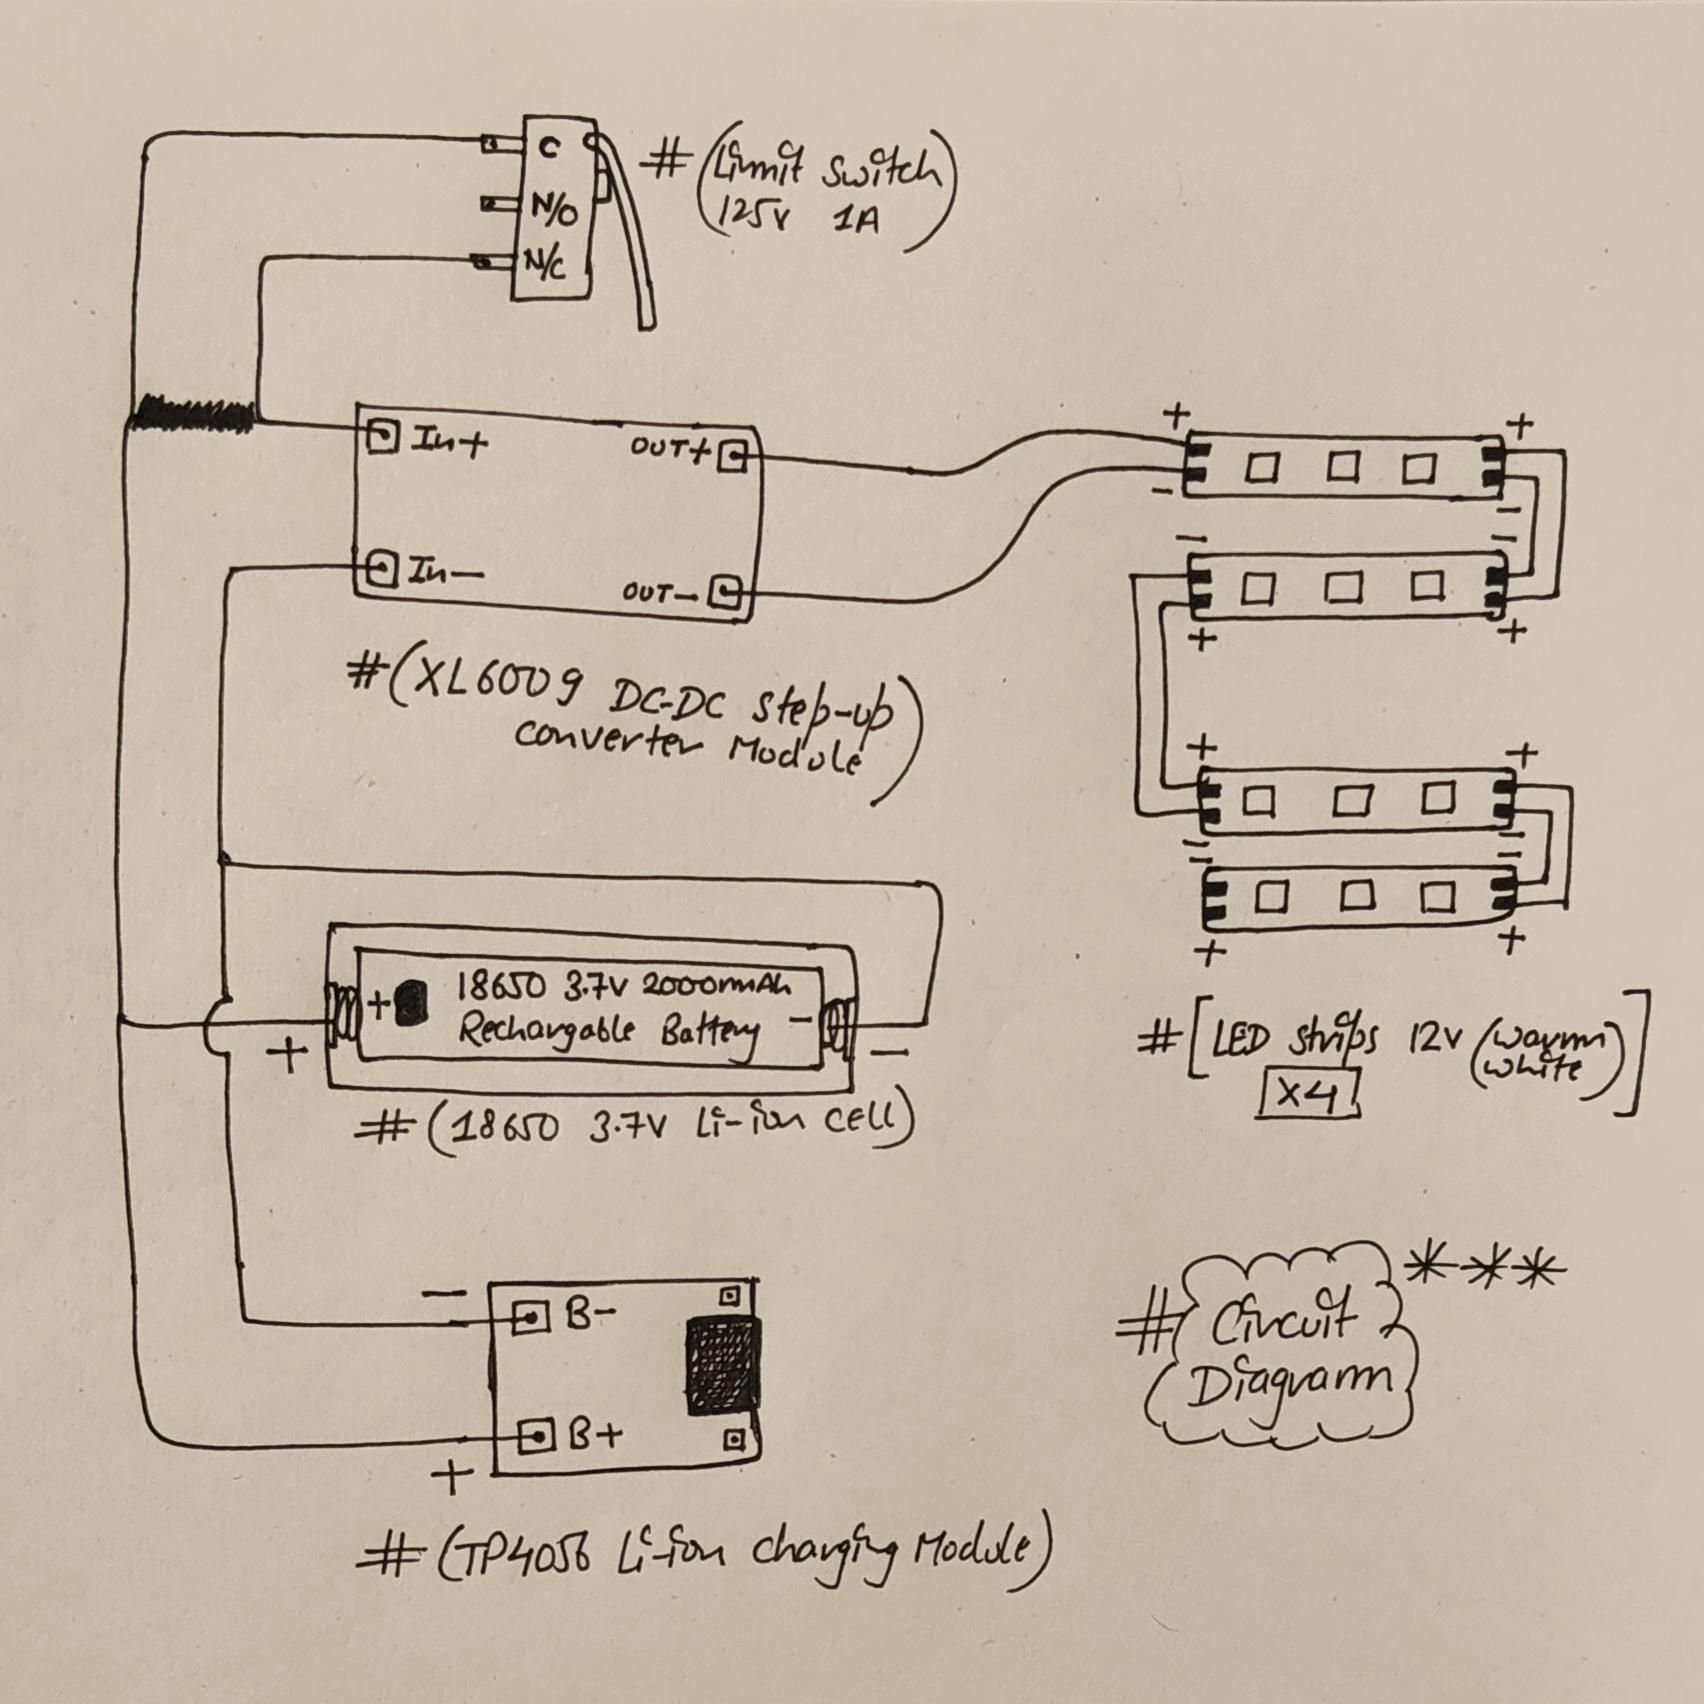 C
N/O
N/C
# (Limit Switch)
125v 1A
In+
OUT+
In-
OUT-
# (XL6009 DC-DC Step-up
converter Module)
+ -
+ -
- -
+ +
+ +
- -
- -
+ +
18650 3.7v 2000mAh
+ Rechargable Battery -
+ -
# (18650 3.7v Li-ion cell)
# [LED strips 12v (warm
white)]
x4
- B-
B+
+
# (TP4056 Li-ion Charging Module)
# Circuit ***
Diagram